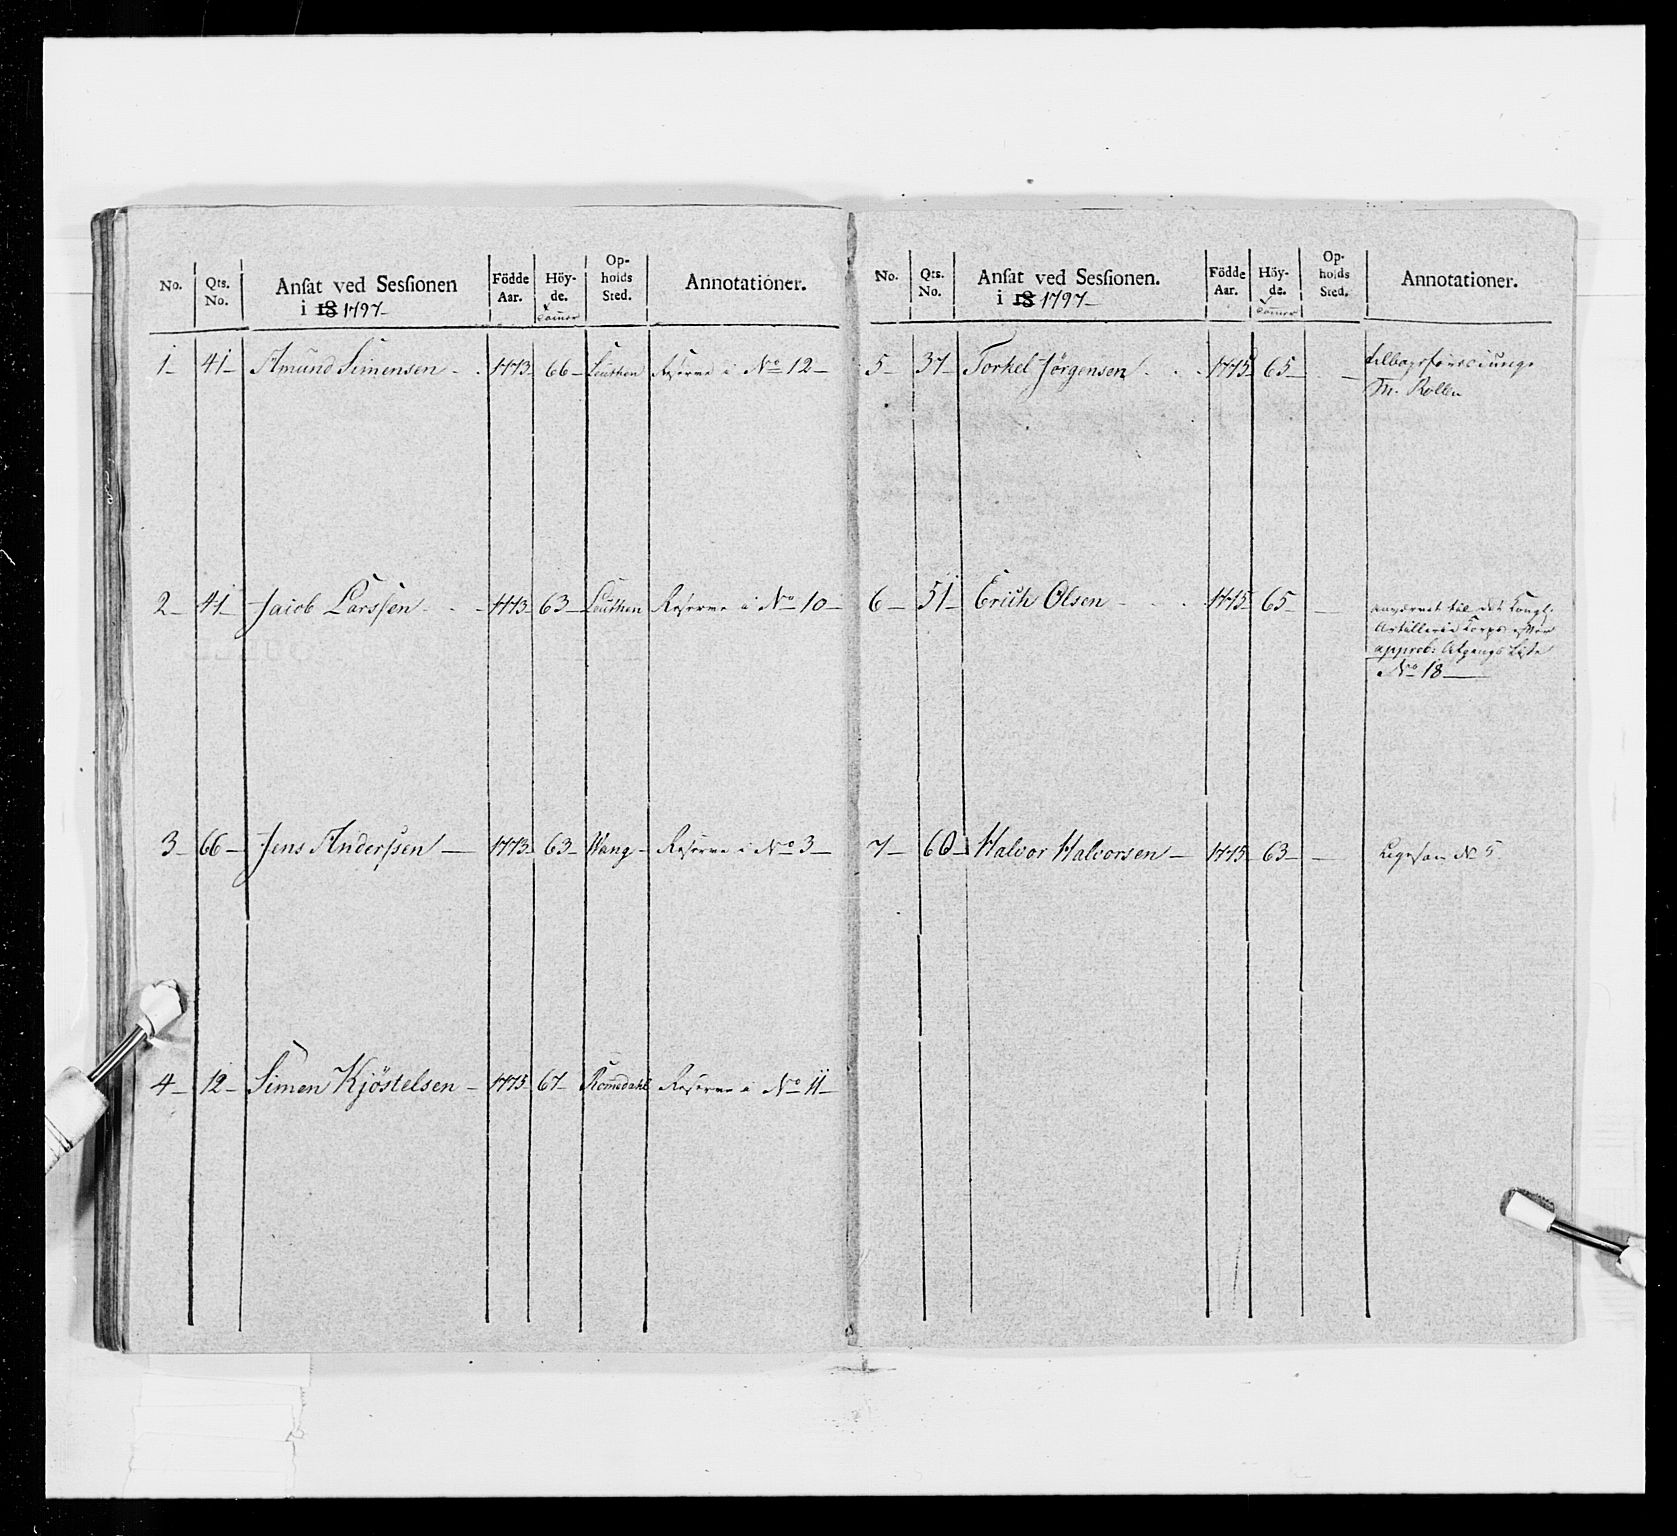 No. Qts. No. Ansat ved Sessionen i 18 1797 Födde Aar. Höy- de. Op- holds Sted. Annotationer.
1 41 Amund Simensen 1773 66 Leuthen Reserve i No 12
2 41 Jacob Larssen 1773 63 Leuthen Reserve i No 10
3 66 Jens Anderssen 1773 63 Wang Reserve i No 3
4 12 Simen Kjöstelsen 1775 67 Romedahl Reserve i No 11
No. Qts. No. Ansat ved Sessionen. i 18 1797 Födde Aar. Höy- de. Op- holds Sted. Annotationer.
5 37 Torkel Jörgensen 1775 65
Rollen
6 51 Erich Olsen 1775 65 til det Kongl:
Artillerie Corps efter
approb: Afgangs Liste
No 18
7 60 Halvor Halvorsen 1775 63 Ligesom No 5